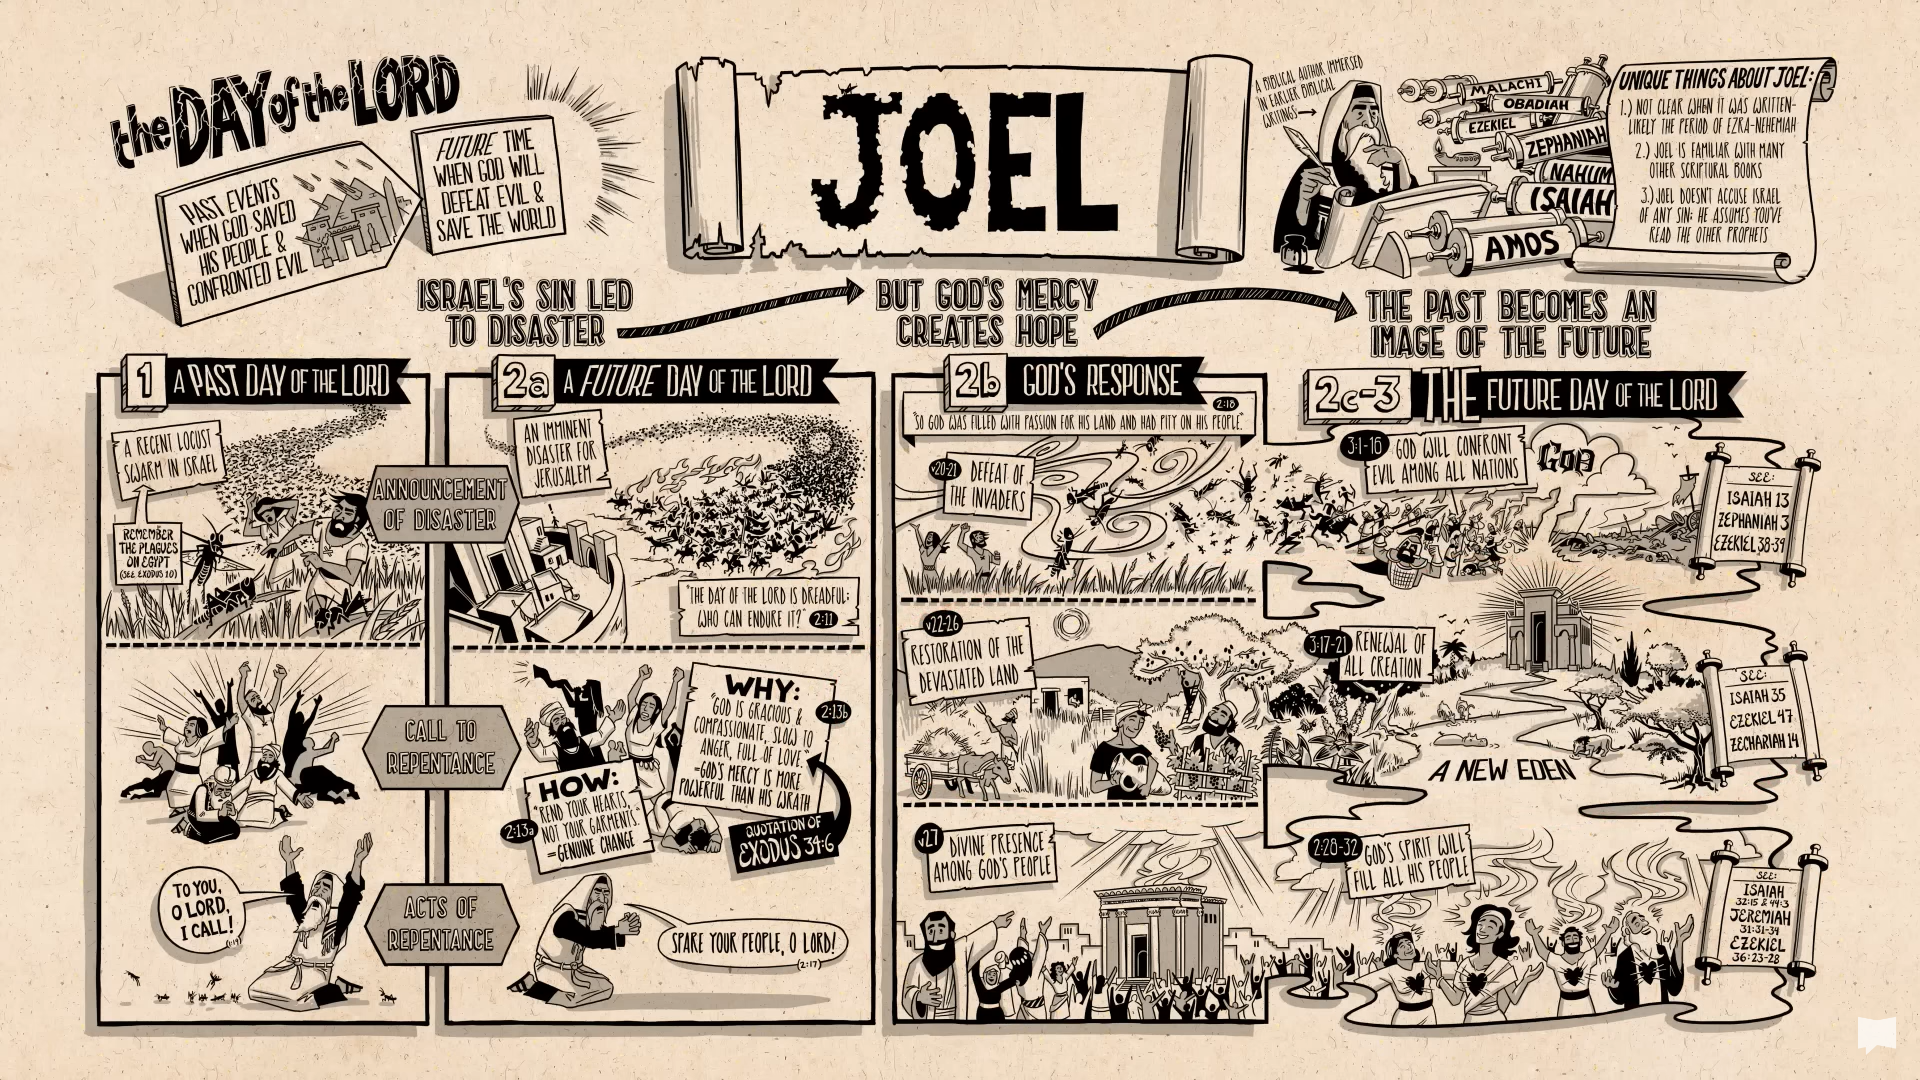 the DAY of the LORD
PAST EVENTS
WHEN GOD SAVED
HIS PEOPLE &
CONFRONTED EVIL
FUTURE TIME
WHEN GOD WILL
DEFEAT EVIL &
SAVE THE WORLD
JOEL
A BIBLICAL AUTHOR IMMERSED
IN EARLIER BIBLICAL
WRITINGS
MALACHI
OBADIAH
EZEKIEL
ZEPHANIAH
NAHUM
ISAIAH
AMOS
UNIQUE THINGS ABOUT JOEL:
1.) NOT CLEAR WHEN IT WAS WRITTEN-
LIKELY THE PERIOD OF EZRA-NEHEMIAH
2.) JOEL IS FAMILIAR WITH MANY
OTHER SCRIPTURAL BOOKS
3.) JOEL DOESN'T ACCUSE ISRAEL
OF ANY SIN: HE ASSUMES YOU'VE
READ THE OTHER PROPHETS
ISRAEL'S SIN LED
TO DISASTER
BUT GOD'S MERCY
CREATES HOPE
THE PAST BECOMES AN
IMAGE OF THE FUTURE
1 A PAST DAY OF THE LORD
A RECENT LOCUST
SWARM IN ISRAEL
REMEMBER
THE PLAGUES
ON EGYPT
(SEE EXODUS 10)
ANNOUNCEMENT
OF DISASTER
CALL TO
REPENTANCE
TO YOU,
O LORD,
I CALL!
(1:19)
ACTS OF
REPENTANCE
2a A FUTURE DAY OF THE LORD
AN IMMINENT
DISASTER FOR
JERUSALEM
"THE DAY OF THE LORD IS DREADFUL:
WHO CAN ENDURE IT?" 2:11
WHY:
"GOD IS GRACIOUS &
COMPASSIONATE, SLOW TO
ANGER, FULL OF LOVE."
=GOD'S MERCY IS MORE
POWERFUL THAN HIS WRATH
2:13b
HOW:
"REND YOUR HEARTS,
NOT YOUR GARMENTS."
=GENUINE CHANGE
2:13a
QUOTATION OF
EXODUS 34:6
SPARE YOUR PEOPLE, O LORD!
(2:17)
2b GOD'S RESPONSE
2:18
"SO GOD WAS FILLED WITH PASSION FOR HIS LAND AND HAD PITY ON HIS PEOPLE."
v20-21 DEFEAT OF
THE INVADERS
v22-26
RESTORATION OF THE
DEVASTATED LAND
v27 DIVINE PRESENCE
AMONG GOD'S PEOPLE
2c-3 THE FUTURE DAY OF THE LORD
3:1-16 GOD WILL CONFRONT
EVIL AMONG ALL NATIONS
GOD
SEE:
ISAIAH 13
ZEPHANIAH 3
EZEKIEL 38-39
3:17-21 RENEWAL OF
ALL CREATION
A NEW EDEN
SEE:
ISAIAH 35
EZEKIEL 47
ZECHARIAH 14
2:28-32 GOD'S SPIRIT WILL
FILL ALL HIS PEOPLE
SEE:
ISAIAH
32:15 & 44:3
JEREMIAH
31:31-34
EZEKIEL
36:23-28